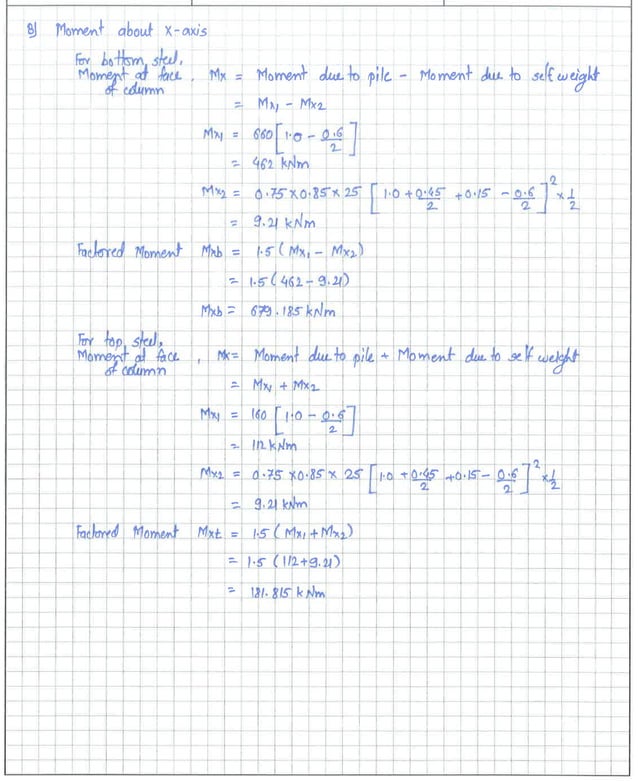 B) Moment about x-axis
For bottom steel,
Moment at face of column, Mx = Moment due to pile - Moment due to self weight
= Mx1 - Mx2
Mx1 = 660 [1.0 - 0.6/2]
= 462 kNm
Mx2 = 0.75 x 0.85 x 25 [1.0 + 0.45/2 + 0.15 - 0.6/2]^2 x 1/2
= 9.21 kNm
Factored Moment Mxb = 1.5 (Mx1 - Mx2)
= 1.5 (462 - 9.21)
Mxb = 679.185 kNm
For top steel,
Moment at face of column, Mx = Moment due to pile + Moment due to self weight
= Mx1 + Mx2
Mx1 = 160 [1.0 - 0.6/2]
= 112 kNm
Mx2 = 0.75 x 0.85 x 25 [1.0 + 0.45/2 + 0.15 - 0.6/2]^2 x 1/2
= 9.21 kNm
Factored Moment Mxt = 1.5 (Mx1 + Mx2)
= 1.5 (112 + 9.21)
= 181.815 kNm